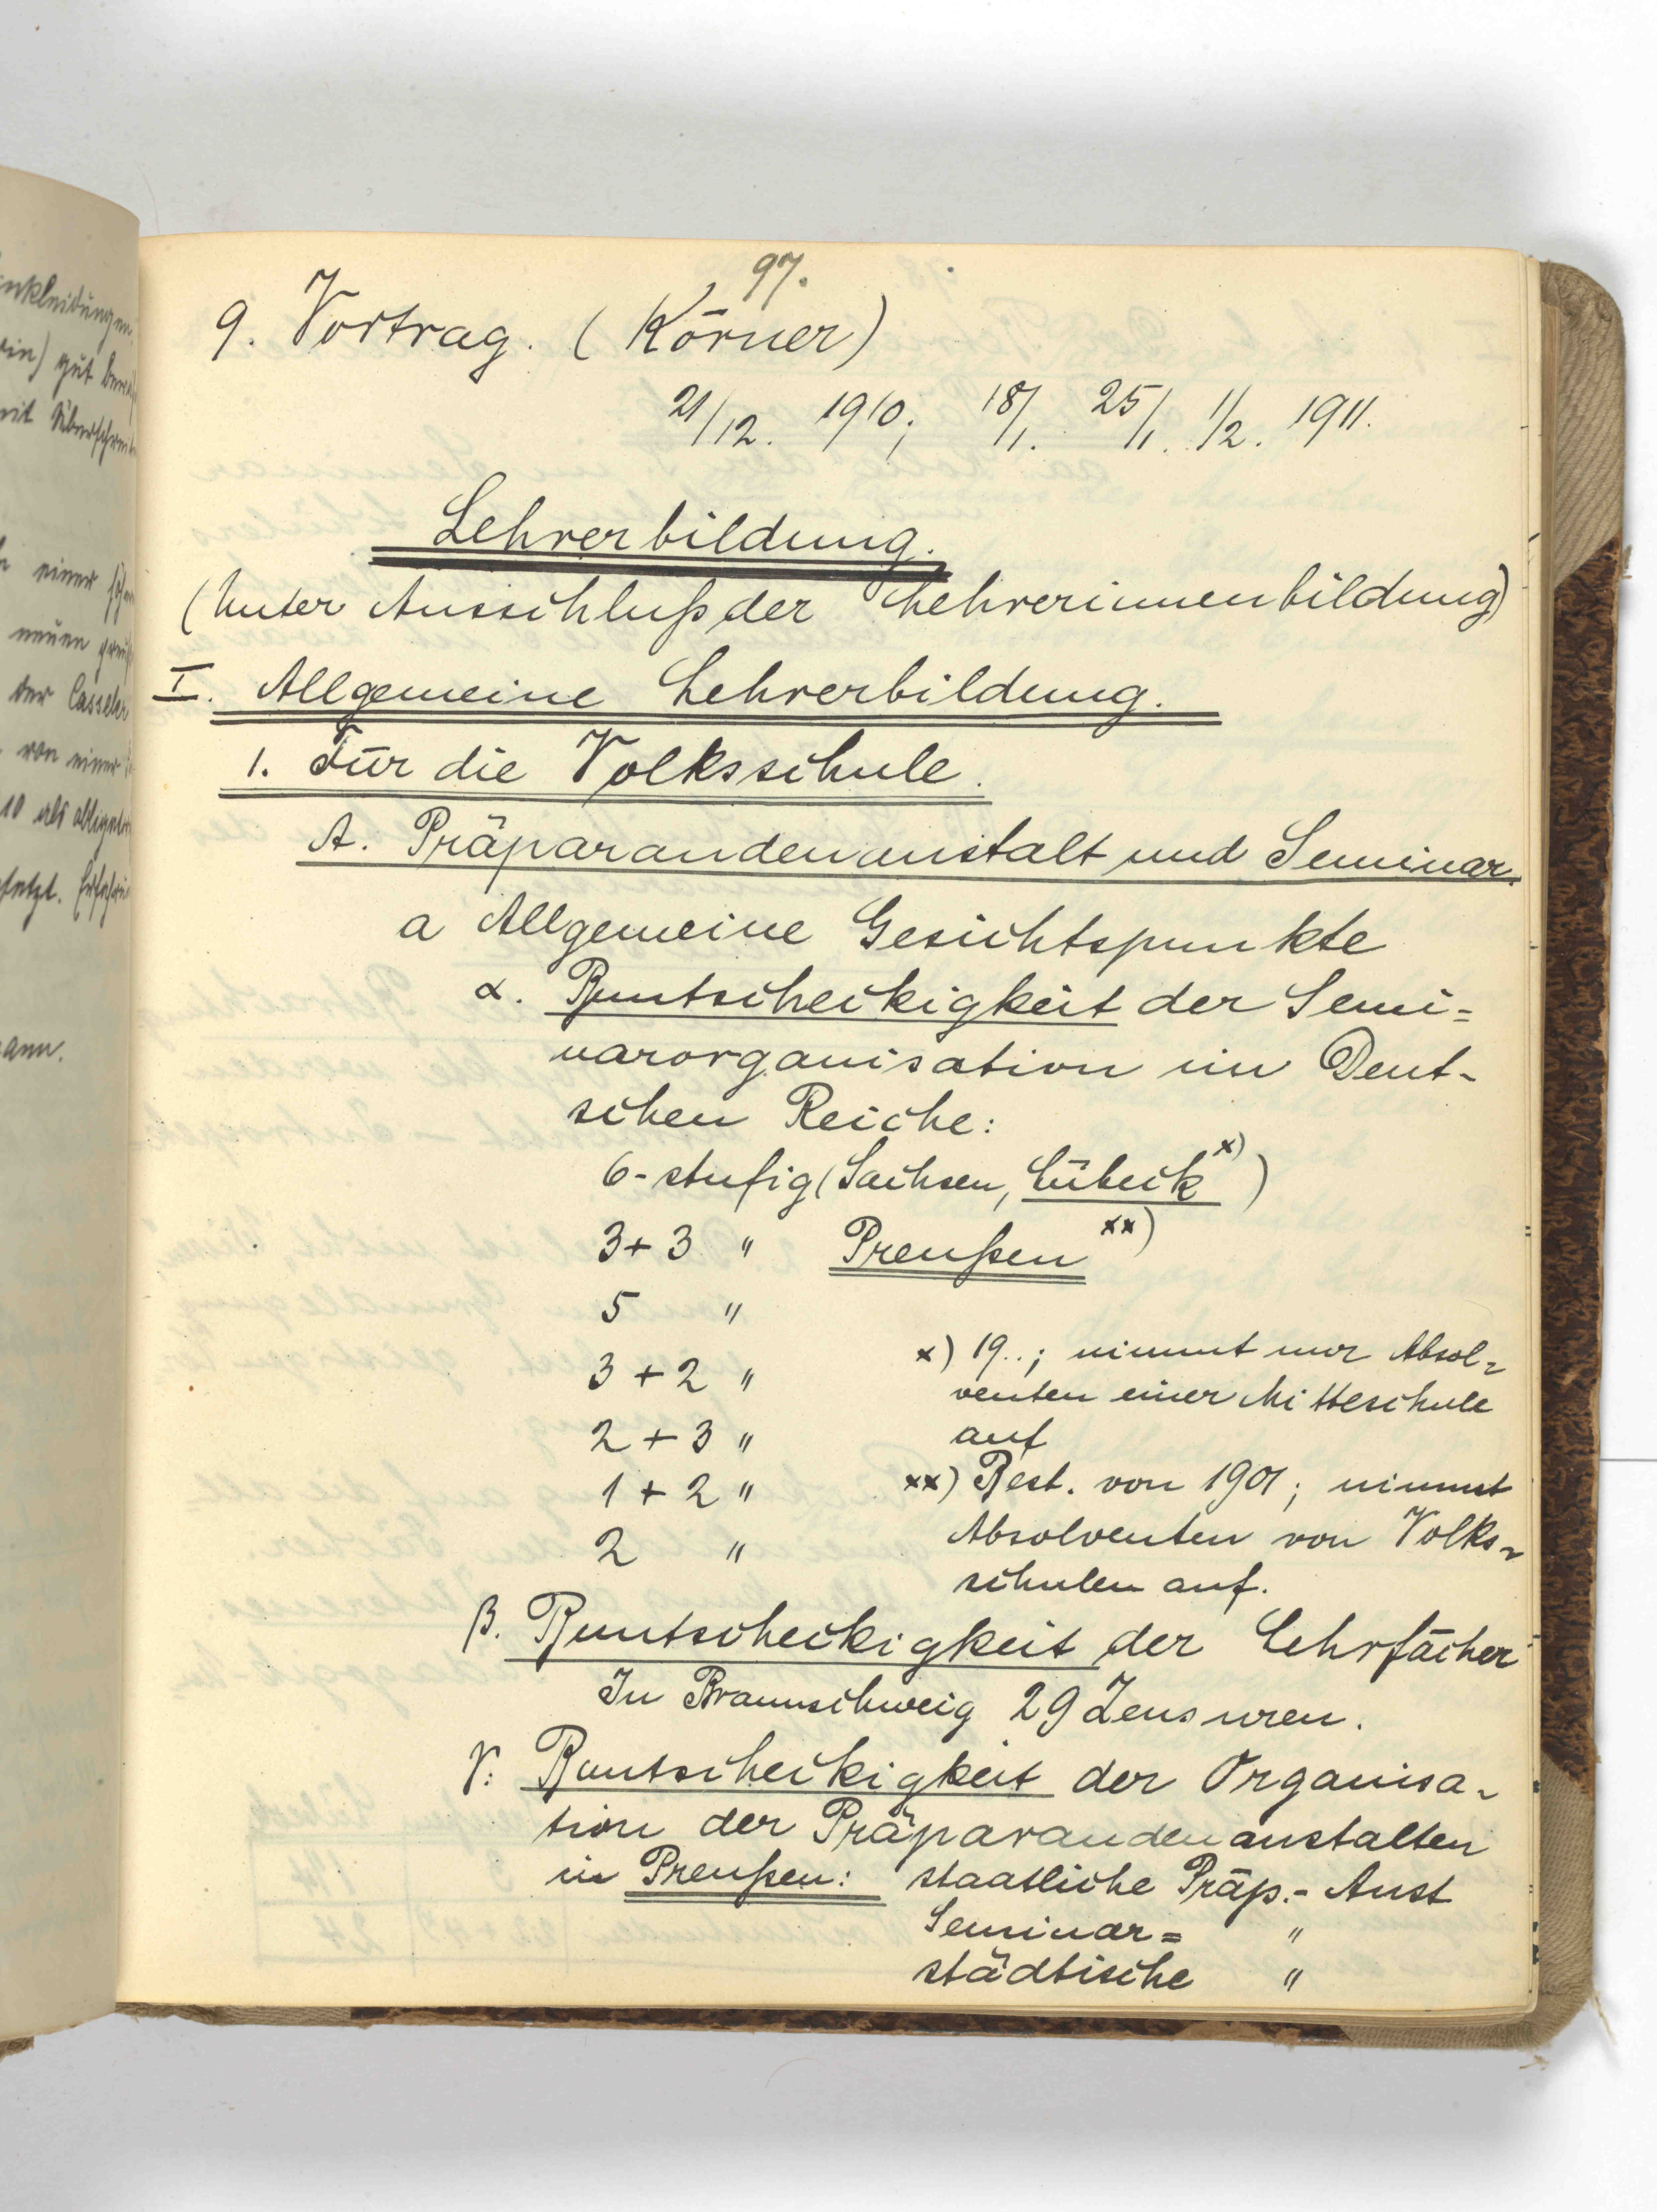 97.
9. Vortrag. (Körner)
21/12. 1910; 18/1. 25/1. 1/2. 1911.
Lehrerbildung.
(Unter Ausschluß der Lehrerinnenbildung)
I. Allgemeine Lehrerbildung.
1. Für die Volksschule.
A. Präparandenanstalt und Seminar.
a Allgemeine Gesichtspunkte
α. Buntscheckigkeit der Semi=
narorganisation im Deut-
schen Reiche:
6-stufig (Sachsen, Lübeck x))
3+3 " Preußen xx)
5 "
3+2 "
2+3 "
1+2 "
2 "
x) 19..; nimmt nur Absol=
venten einer Mittelschule
auf
xx) Best. von 1901; nimmt
Absolventen von Volks=
schulen auf.
β. Buntscheckigkeit der Lehrfächer
In Braunschweig 29 Zensuren.
γ: Buntscheckigkeit der Organisa-
tion der Präparandenanstalten
in Preußen: staatliche Präp.- Anst
Seminar= "
städtische "
nkleidungen
rin) gut
mit
einer
neuen
der Casseler
von einer
10 als
setzt.
ann.